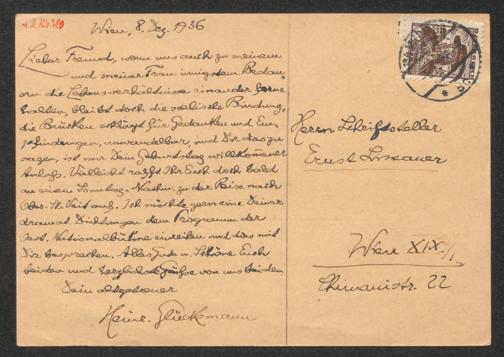 Wien, 8. Dez. 1936
Lieber Freund, wenn uns auch zu meinem
und meiner Frau innigstem Bedau-
ern die Lebensverhältnisse einander ferne
halten, bleibt doch die seelische Bindung,
die Brücken schlägt für Gedanken und Em-
pfindungen, unwandelbar, und Dir das zu
sagen, ist mir Dein Geburtstag willkommener
Anlass. Vielleicht rafft Ihr Euch doch bald
an einem Sonntag-Nachm. zu der Reise nach
Ober-St. Veit auf. Ich möchte gern eine Deiner
dramat. Dichtungen dem Programm der
Öst. Nationalbühne einreihen und das mit
Dir besprechen. Alles Gute u. Schöne Euch
beiden und herzlichste Grüsse von uns beiden
Dein altgetreuer
Heinr. Glücksmann
Herrn Schriftsteller
Ernst Lissauer
Wien XIX/1
Chimanistr. 22